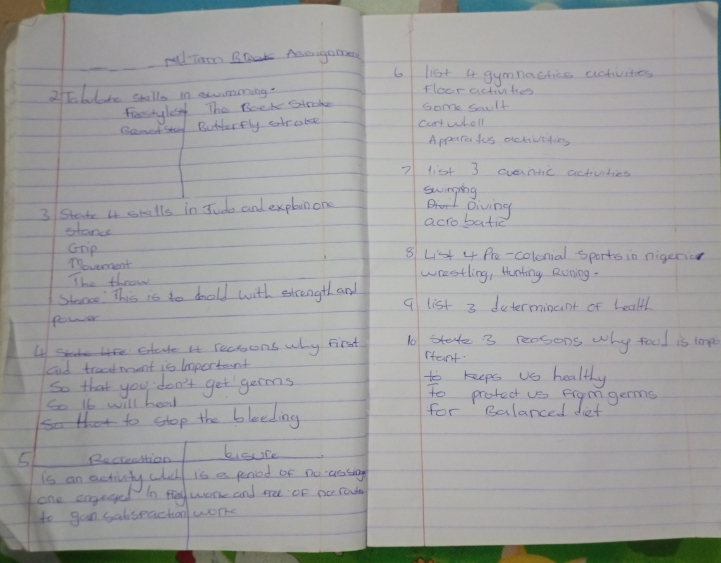 Mid Tarm Assignment
2 Tabulate skills in swimming.
Freestyle The Back Stroke
Butterfly stroke
3 State 4 skills in Judo and explain one
Stance
Grip
Movement
The throw
Stance: This is to hold with strength and
power
4 state 4 reasons why First
aid treatment is important
So that you don't get germs
So it will heal
to stop the bleeding
5 Recreation Leisure
is an activity which is a period of no assign
one engaged in work and free of
to gain satisfaction work
6 list 4 gymnastics activities
floor activities
some sault
cart whell
Apparatus activities
7 list 3 activities
swinging
Diving
acrobatic
8 List 4 Pre-colonial sports in nigeria
wrestling, Hunting Runing.
9 list 3 determinant of health
10 State 3 reasons why food is impo
rtant.
to keeps us healthy
to protect us from germs
for Balanced diet